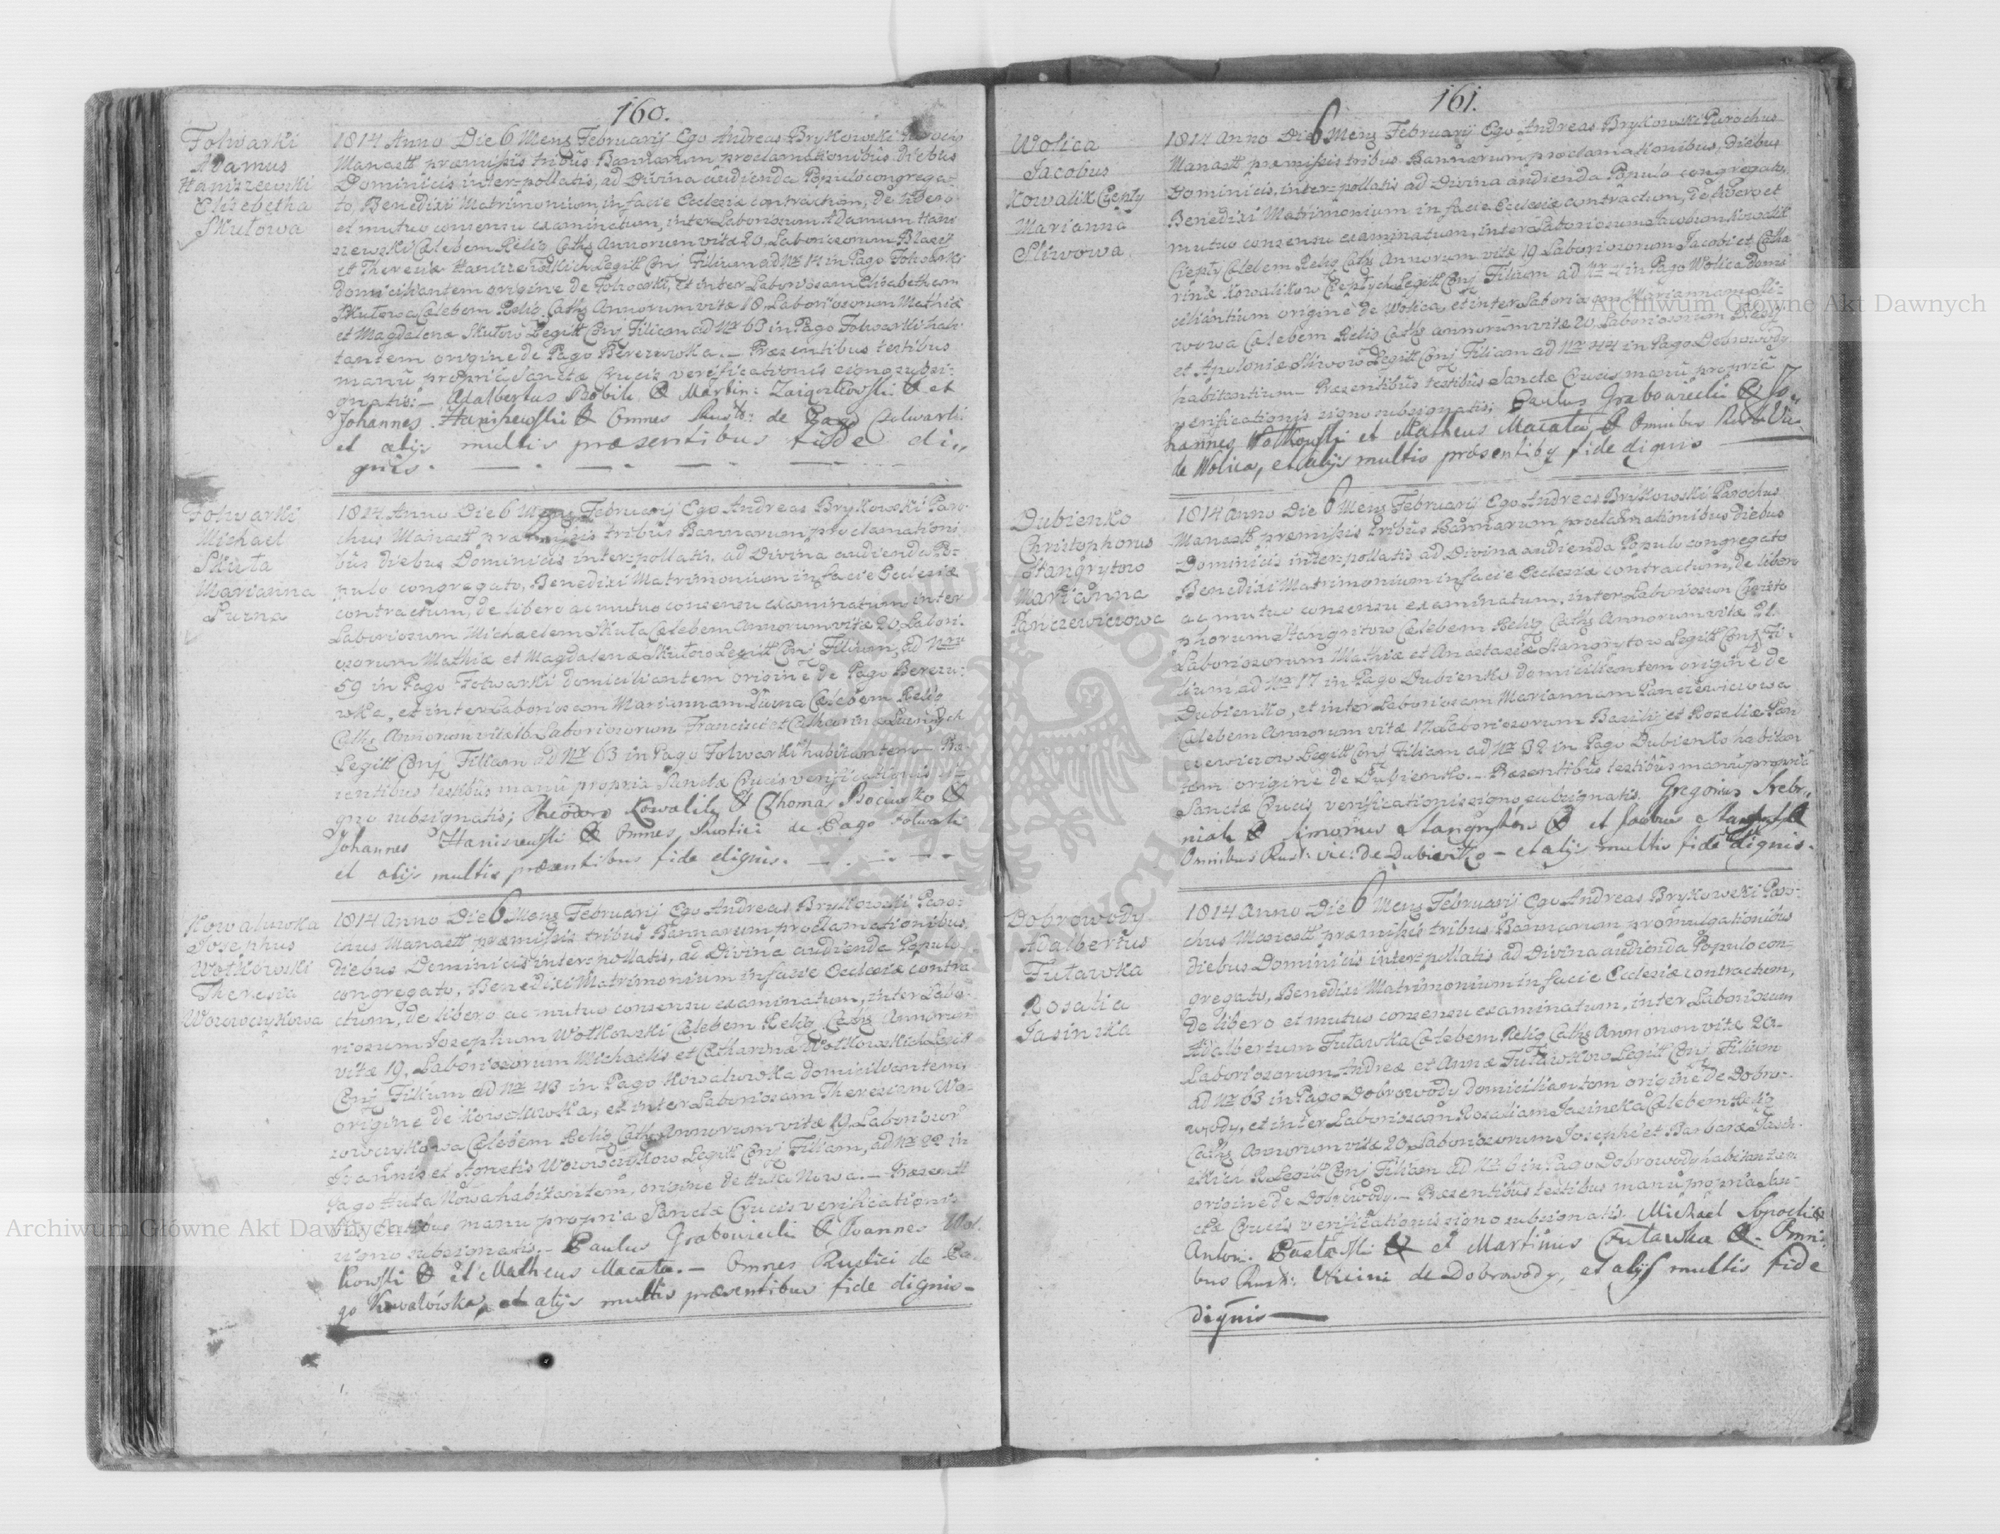 160.
Folwarki
Adamus
Haniszewski
Elizbetha
Skułowa
1814 Anno Die 6 Mens Februarij Ego Andreas Brykowski Parochus
Manastt præmissis tribûs Bannarum proclamationibûs diebus
Dominicis inter-pollatis, ad Divina audienda Populo congrega-
to, Benedixi Matrimonium in facie Ecclesiæ contractum, de libero
et mutuo consensu examinatum, inter Laboriosum Adamum Hani
szewski Cælebem Relig Cath Annorum vitæ 20 Laboriosorum Blasij
et Theresiæ Haniszewskich Legitt Conj Filium ad Nr 14 in Pago Folwarki
domiciliantem origine de Folwarki, et inter Laboriosam Elisabetham
Skułowa Cælebem Relig Cath Annorum vitæ 18 Laboriosorum Mathiæ
et Magdalena Skułow Legitt Conj Filiam ad Nr 63 in Pago Folwarki habi
tantem origine de Pago Berezowka. — Præsentibus testibus
manû propriâ Sanctæ Crucis verificationis signo subsi-
gnatis: — Adalbertus Bobik & Martin: Zaigorkowski & et
Johannes Haniszewski & Omnes Rust: de Pago Folwarki
et alijs multis præsentibus fide di,,
gnis.
Folwarki
Michael
Skuła
Marianna
Purna
1814 Anno Die 6 Mens Februarij Ego Andreas Brykowski Paro-
chus Manastt præmissis tribûs Bannarum proclamationi
bûs diebus Dominicis inter-pollatis, ad Divina audienda Po-
pulo congregato, Benedixi Matrimonium in facie Ecclesiæ
contractum, de libero ac mutuo consensu examinatum inter
Laboriosum Michaelem Skuła Cælebem Annorum vitæ 20 Labori-
osorum Mathiæ et Magdalenæ Skułow Legitt Conj Filium, ad Nrû
59 in Pago Folwarki domiciliantem origine de Pago Berezu-
wka, et inter Laboriosam Mariannam Purna Cælebem Relig
Cath, Annorum vitæ 16 Laboriosorum Francisci et Catharina
Legitt Conj Filiam ad Nr 63 in Pago Folwarki habitantem — Præ-
sentibus testibûs manû propria Sanctæ Crucis verificationis si-
gno subsignatis; Theodoro Kowalik & Thoma Bociwko &
Johannes Haniszewski & Omnes Rustici de Pago Folwarki
et alijs multis præsentibus fide dignis.
Kowaluwka
Josephus
Wołkowski
Theresia
Worowczykowa
1814 Anno Die 6 Mens Februarij Ego Andreas Brykowski Paro-
chus Manastt præmissis tribus Bannarum proclamationibus,
diebus Dominicis inter-pollatis, ad Divina audienda Populo
congregato, Benedixi Matrimonium in facie Ecclesiæ contra
ctum, de libero ac mutuo consensu examinatum, inter Labo-
riosum Josephum Wołkowski Cælebem Relig Cath Annorum
vitæ 19, Laboriosorum Michaelis et Catharina Wołkowskich Legitt
Conj Filium ad Nr 43 in Pago Kowaluwka domiciliantem,
origine de Kowaluwka, et inter Laboriosam Theresiam Wo-
rowczykowa Cælebem Relig Cath Annorum vitæ 19 Laboriosor
Joannis et Agnetis Worowczykow Legitt Conj Filiam, ad Nr 22 in
Pago Huta Nowa habitantem, origine de Huta Nowa. — Præsentt
testibus manu propria Sanctæ Crucis verificationis
signo subsignatis. — Paulus Grabowiecki & Joannes Woł-
kowski & et Matheus Macata. — Omnes Rustici de Pa-
go Kowalówka, et alijs multis præsentibus fide dignis.
161.
Wolica
Jacobus
Kowalik Ciepły
Marianna
Sliwowa
1814 Anno Die 6 Mens Februarij Ego Andreas Brykowski Parochus
Manastt præmissis tribus Bannarum proclamationibus, diebus
Dominicis, inter-pollatis ad Divina audienda Populo congregato,
Benedixi Matrimonium in facie Ecclesiæ contractum, de libero et
mutuo consensu examinatum, inter Laboriosum Jacobum Kowalik
Ciepły Cælebem Relig Cath Annorum vitæ 19 Laboriosorum Jacobi et Catha
rinæ Kowalikow Ciepłych Legitt Conj Filium ad Nr 4 in Pago Wolica domi
ciliantium origine de Wolica, et inter Laboriosam Mariannam Sli-
wowa Cælebem Relig Cath annorum vitæ 20 Laboriosorum
et Apoloniæ Sliwow Legitt Conj Filiam ad Nr 44 in Pago Dobrowody
habitantium Præsentibûs testibûs Sanctæ Crucis manû propriâ
verificationis signo subsignatis; Paulus Grabowiecki & Jo
hannes Wołkowski et Matheus Macata & Omnibus Rust: Vic:
de Wolica, et alijs multis præsentibq fide dignis
Dubienko
Christophorus
Stangrytow
Marianna
Panczewiczowa
1814 Anno Die 6 Mens Februarij Ego Andreas Brikowski Parochus
Manastt præmissis tribûs Bannarum proclamationibus diebus
Dominicis inter-pollatis ad Divina audienda Populo congregato
Benedixi Matrimonium in facie Ecclesiæ contractum, de libero
ac mutuo consensu examinatum, inter Laboriosum Christo
phorum Stangritow Cælebem Relig Cath Annorum vitæ 21.
Laboriosorum Mathiæ et Anastasiæ Stangrytow Legitt Conj Fi-
lium ad Nr 17 in Pago Dubienko domiciliantem origine de
Dubienko, et inter Laboriosam Mariannam Panczewiczowa
Cælebem Annorum vitæ 17 Laboriosorum Basilij et Rosaliæ Pan
czewiczow Legitt Conj Filiam ad Nr 32 in Pago Dubienko habitan
tem origine de Dubienko. — Præsentibûs testibûs manû propriâ
Sanctæ Crucis verificationis signo subsignatis. Gregorius Srebr,,
niak & Simonus Stangryton & et Jacobus &
Omnibus Rust: vic: de Dubienko — et alijs multis fide dignis.
Dobrowody
Adalbertus
Tutawka
Rosalia
Jasinska
1814 Anno Die 6 Mens Februarij Ego Andreas Brykowski Paro-
chus Manastt præmissis tribus Bannarum promulgationibus
diebus Dominicis inter-pollatis ad Divina audienda Populo con-
gregato, Benedixi Matrimonium in facie Ecclesiæ contractum,
de libero et mutuo consensu examinatum, inter Laboriosum
Adalbertum Tutawka Cælebem Relig Cath Annorum vitæ 20.
Laboriosorum Andreæ et Annæ Tutawkow Legitt Conj Filium
ad Nr 03 in Pago Dobrowody domiciliantem origine de Dobro-
wody, et inter Laboriosam Rosaliam Jasinska Cælebem Relig
Cath Annorum vitæ 20 Laboriosorum Josephi et Barbaræ Jasin-
skich Legitt Conj Filiam ad Nr 6 in Pago Dobrowody habitantem
origine de Dobrowody. — Præsentibûs testibus manû propria San-
ctæ Crucis verificationis signo subsignatis. Michael Sopocki &
Anton: & et Martinus Tutawka & Omni-
bus Rust: Vicini de Dobrowody, et alijs multis fide
dignis
Archiwum Główne Akt Dawnych
Archiwum Główne Akt Dawnych
ARCHIWUM GŁÓWNE AKT DAWNYCH